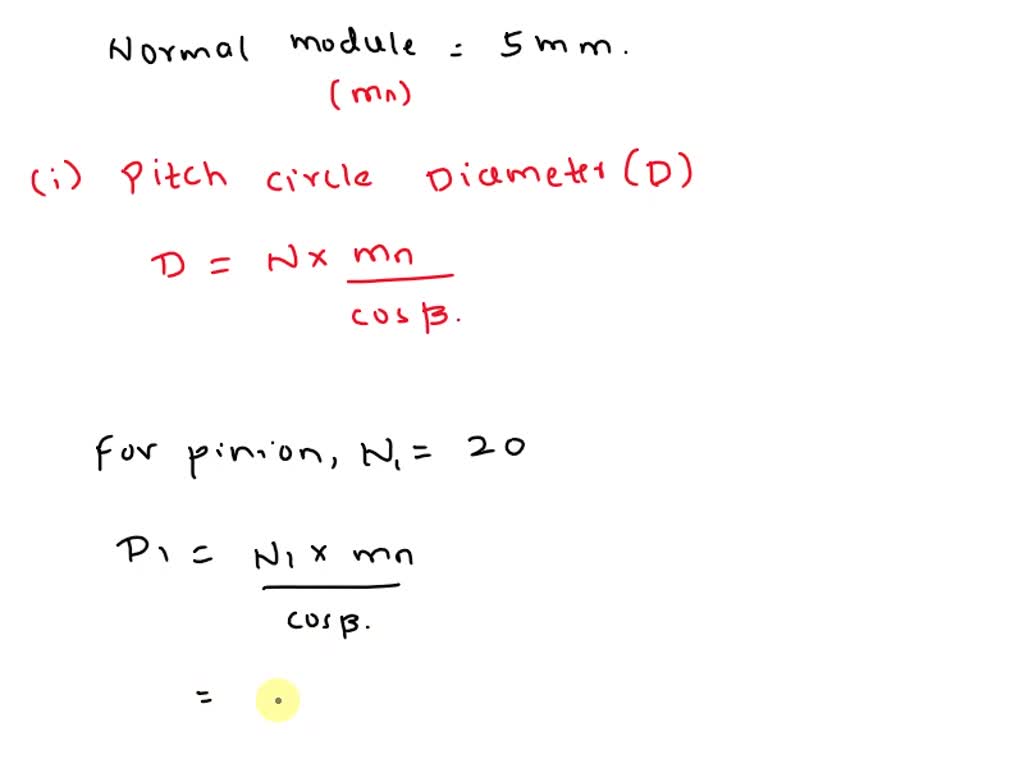 Normal module = 5mm.
(mn)
(i) Pitch circle Diameter (D)
D = N x mn
cosβ.
For pinion, N1 = 20
D1 = N1 x mn
cosβ.
=